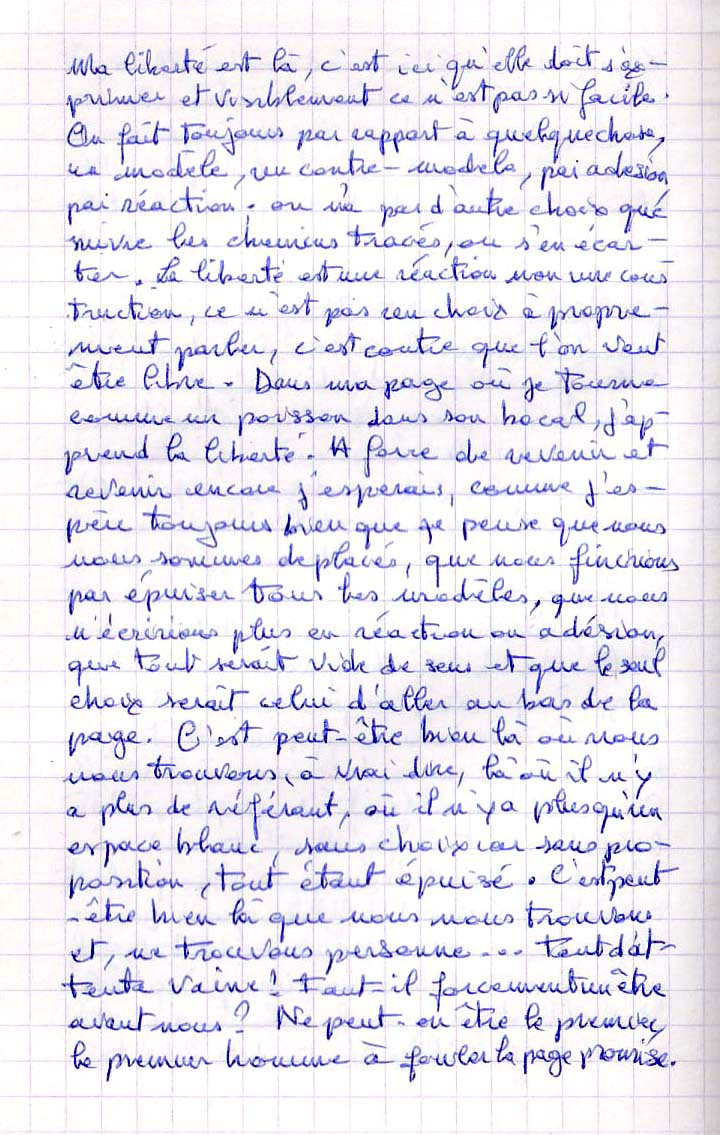 Ma liberté est là, c'est ici qu'elle doit s'ex-
primer et visiblement ce n'est pas si facile.
On fait toujours par rapport à quelquechose,
un modèle, un contre-modèle, par adesion,
par réaction ; on n'a pas d'autre choix que
suivre les chemins tracés, ou s'en écar-
ter. La liberté est une réaction non une cons
truction, ce n'est pas un choix à propre-
ment parler, c'est contre que l'on veut
être libre. Dans ma page où je tourne
comme un poisson dans son bocal, j'ap-
prend la liberté. A force de revenir et
revenir encore j'esperais, comme j'es-
père toujours bien que je pense que nous
nous sommes deplacés, que nous finirions
par épuiser tous les modèles, que nous
n'écririons plus en réaction ou adésion,
que tout serait vide de sens et que le seul
choix serait celui d'aller au bas de la
page. C'est peut-être bien là où nous
nous trouvons, à vrai dire, là où il n'y
a plus de référant, où il n'y a plus qu'un
espace blanc, sans choix car sans pro-
position, tout étant épuisé. C'est peut
-être bien là que nous nous trouvons
et, ne trouvons personne... Tant d'at-
tente vaine ! Faut-il forcement un être
avant nous ? Ne peut-on être le premier,
le premier homme à fouler la page promise.